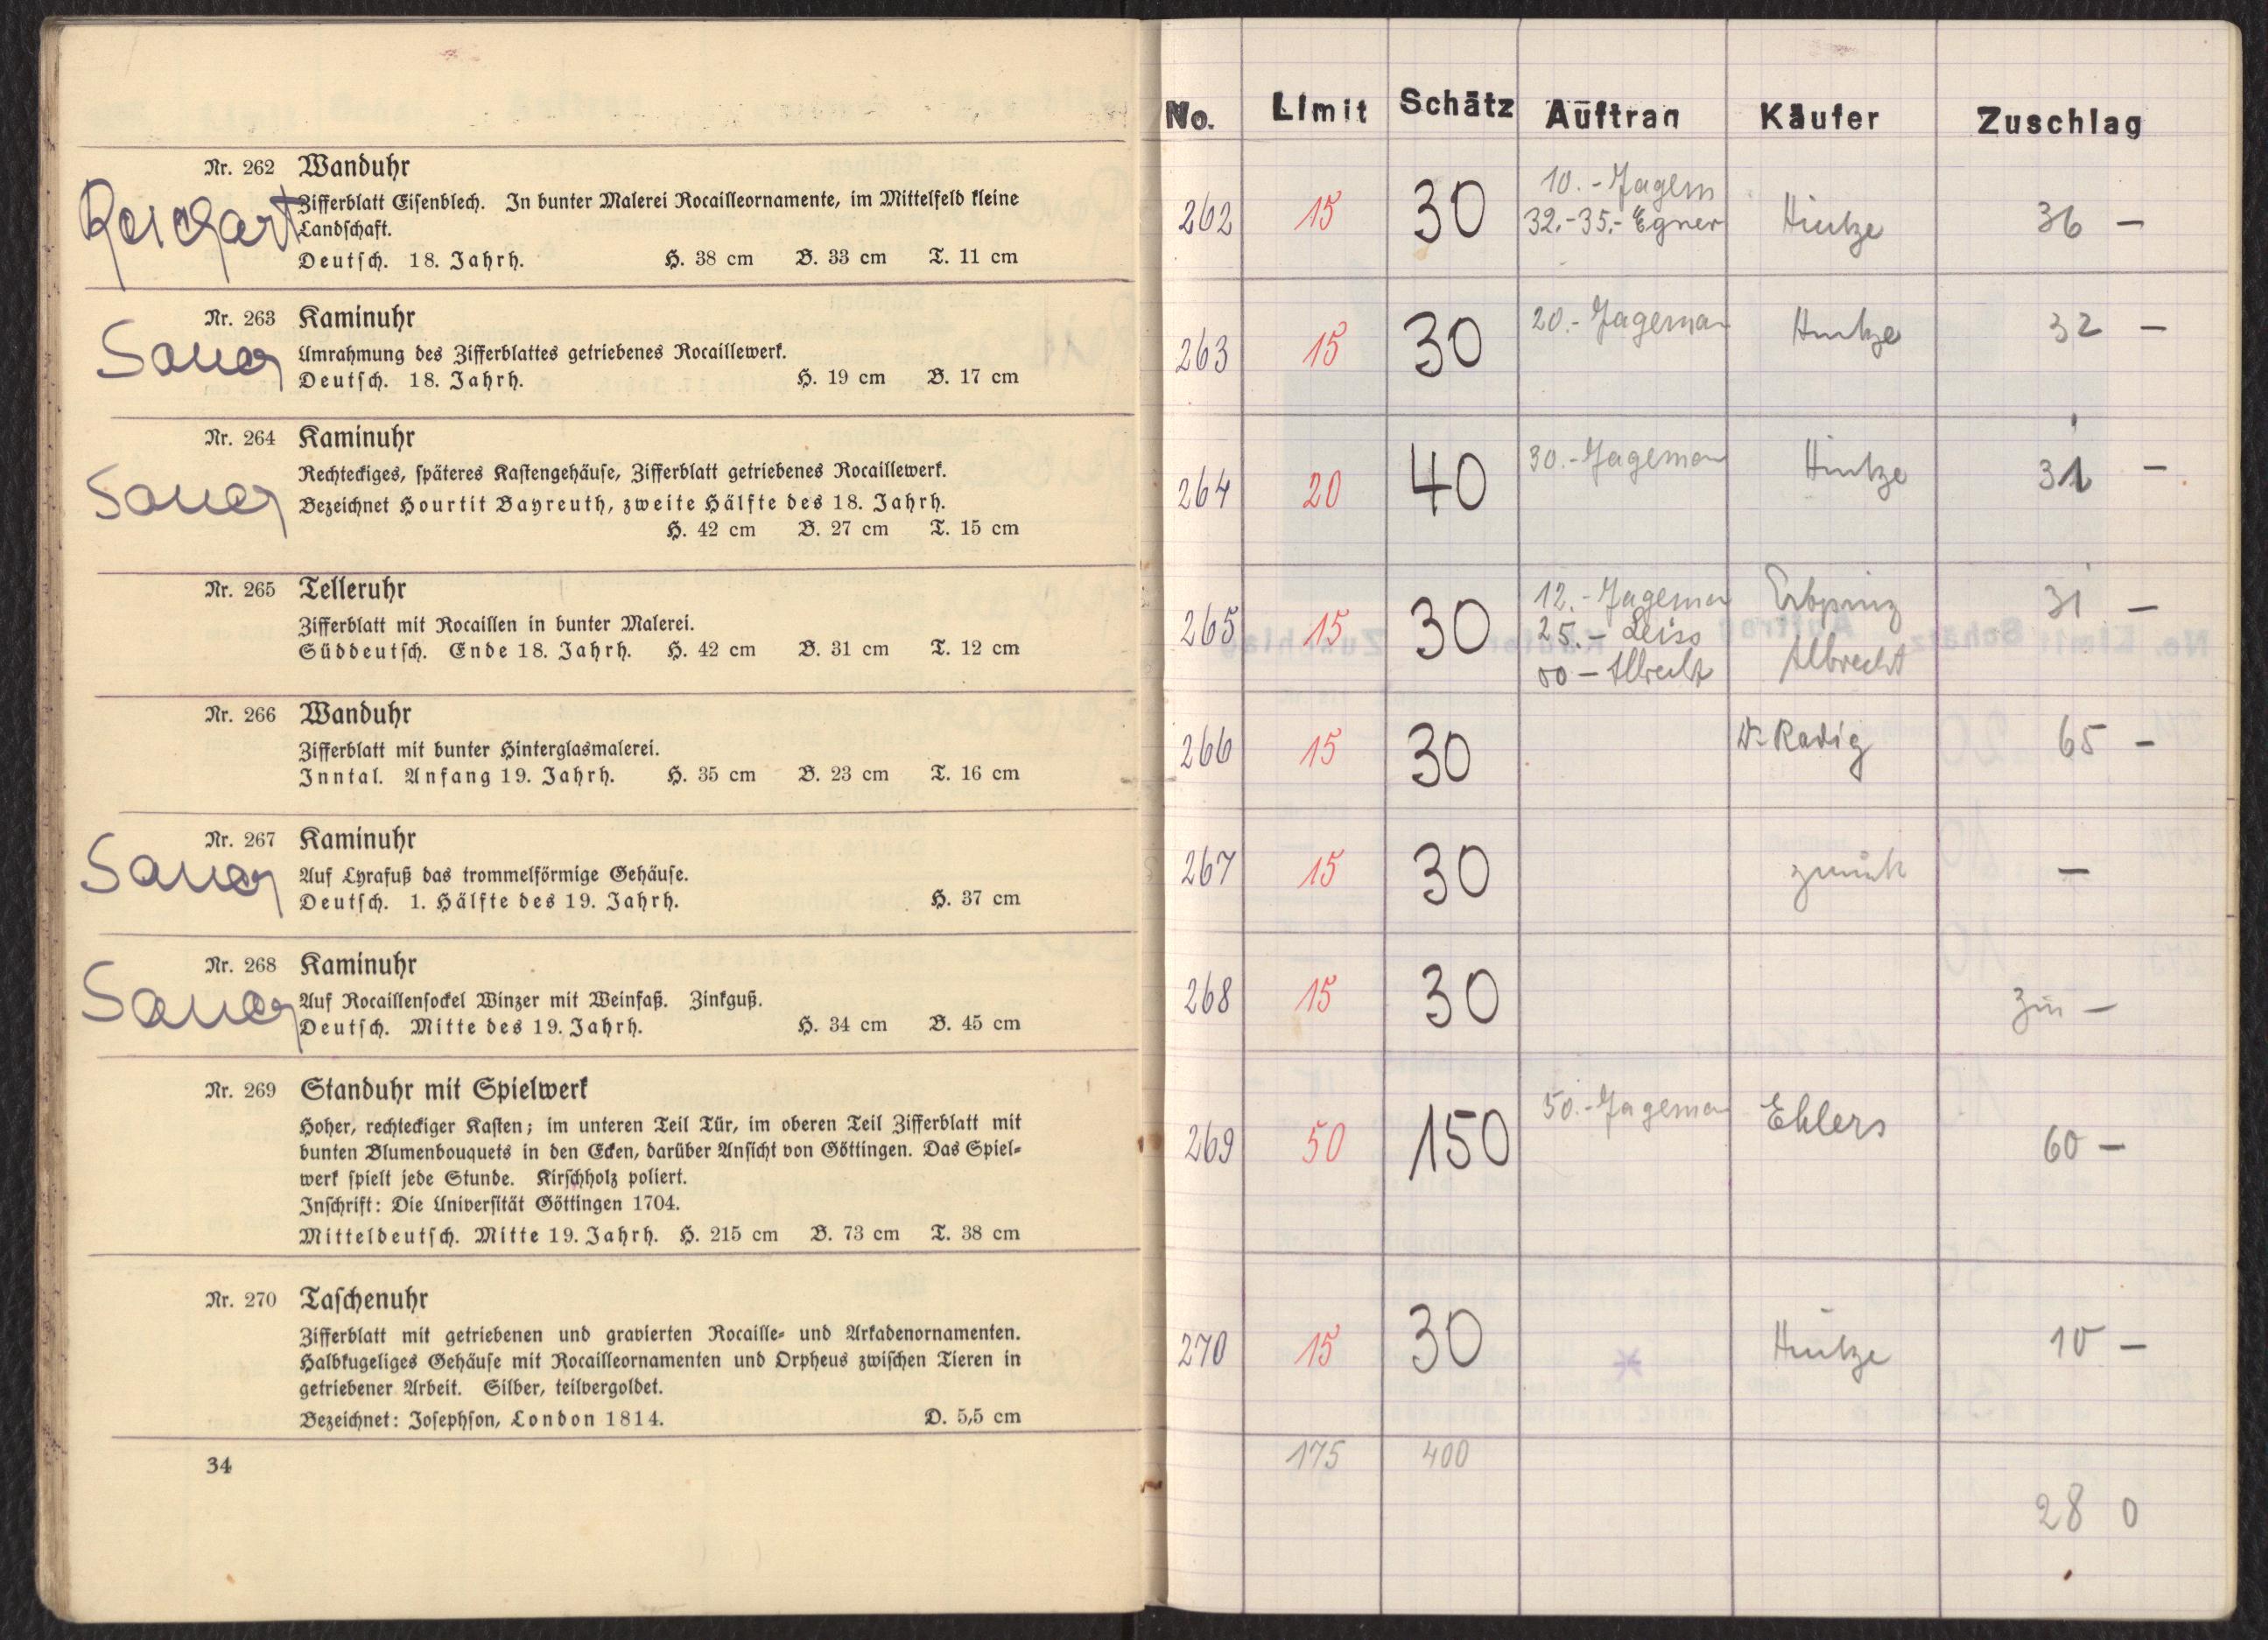 Nr. 262 Wanduhr
Zifferblatt Eisenblech. In bunter Malerei Rocailleornamente, im Mittelfeld kleine
Landschaft.
Deutsch. 18. Jahrh. H. 38 cm B. 33 cm T. 11 cm
Nr. 263 Kaminuhr
Sauer
Umrahmung des Zifferblattes getriebenes Rocaillewerk.
Deutsch. 18. Jahrh. H. 19 cm B. 17 cm
Nr. 264 Kaminuhr
Sauer
Rechteckiges, späteres Kastengehäuse, Zifferblatt getriebenes Rocaillewerk.
Bezeichnet Hourtit Bayreuth, zweite Hälfte des 18. Jahrh.
H. 42 cm B. 27 cm T. 15 cm
Nr. 265 Telleruhr
Zifferblatt mit Rocaillen in bunter Malerei.
Süddeutsch. Ende 18. Jahrh. H. 42 cm B. 31 cm T. 12 cm
Nr. 266 Wanduhr
Zifferblatt mit bunter Hinterglasmalerei.
Inntal. Anfang 19. Jahrh. H. 35 cm B. 23 cm T. 16 cm
Nr. 267 Kaminuhr
Sauer
Auf Lyrafuß das trommelförmige Gehäuse.
Deutsch. 1. Hälfte des 19. Jahrh. H. 37 cm
Nr. 268 Kaminuhr
Sauer
Auf Rocaillensockel Winzer mit Weinfaß. Zinkguß.
Deutsch. Mitte des 19. Jahrh. H. 34 cm B. 45 cm
Nr. 269 Standuhr mit Spielwerk
Hoher, rechteckiger Kasten; im unteren Teil Tür, im oberen Teil Zifferblatt mit
bunten Blumenbouquets in den Ecken, darüber Ansicht von Göttingen. Das Spiel-
werk spielt jede Stunde. Kirschholz poliert.
Inschrift: Die Universität Göttingen 1704.
Mitteldeutsch. Mitte 19. Jahrh. H. 215 cm B. 73 cm T. 38 cm
Nr. 270 Taschenuhr
Zifferblatt mit getriebenen und gravierten Rocaille- und Arkadenornamenten.
Halbkugeliges Gehäuse mit Rocailleornamenten und Orpheus zwischen Tieren in
getriebener Arbeit. Silber, teilvergoldet.
Bezeichnet: Josephson, London 1814. D. 5,5 cm
34
No. Limit Schätz Auftran Käufer Zuschlag
10.- Jagem
262 15 30 32.-35.- Egner Hintze 36 —
263 15 30 20.- Jageman Hintze 32 —
264 20 40 30.- Jageman Hintze 31 —
12.- Jageman Erbprinz 31 —
265 15 30 25.- Leiss
Albrecht Albrecht
266 15 30 Dr. Radig 65 —
267 15 30 zurück —
268 15 30 zu —
269 50 150 50.- Jageman Ehlers 60 —
270 15 30 Hintze 10 —
175 400
28 0